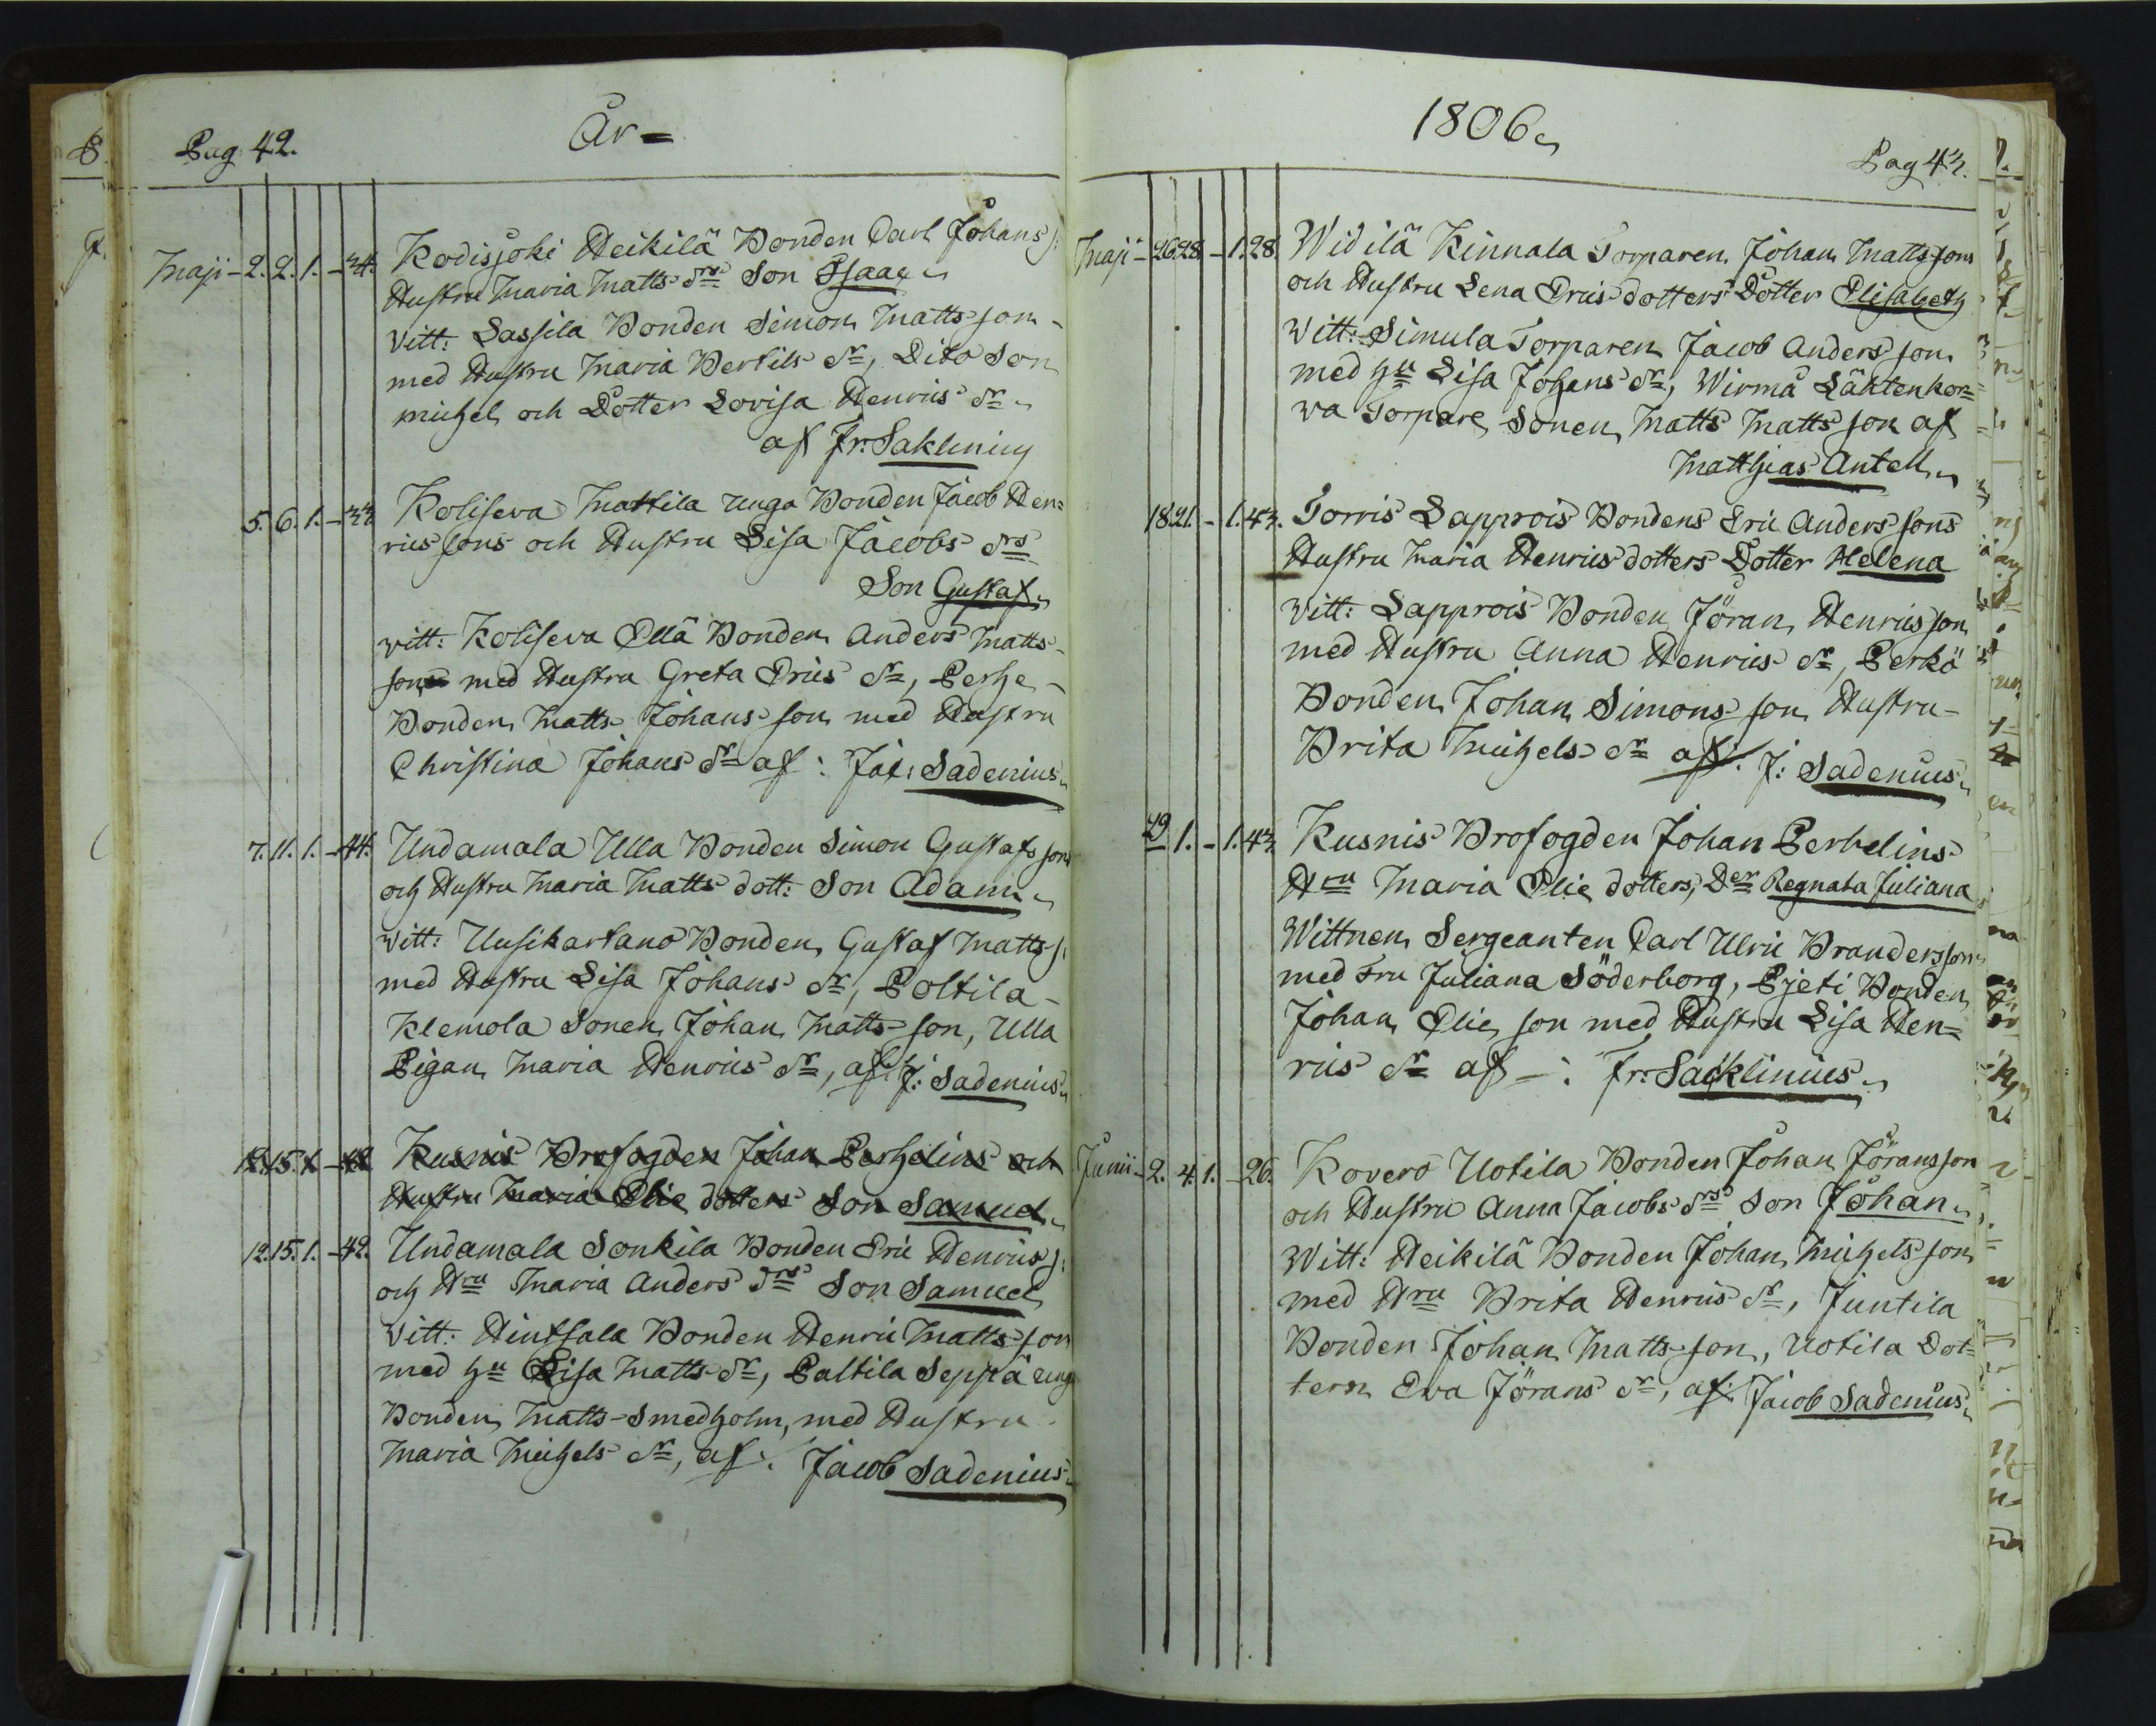 Pag 42.
År =
Maji - 2. 2. 1. - 34. Kodisjoki Heikilä Bonden Carl Johans s:
Hustru Maria Matts drs Son Isaac
Vitt: Lassila Bonden Simon Mattsson
med Hustru Maria Bertils dr, Dito Son
Michel och Dotter Lovisa Henrics dr
af Fr: Saklinius
5. 6. 1. - 33. Koliseva Mattila unga Bonden Jacob Hen=
ricssons och Hustru Lisa Jacobs drs
Son Gustaf
witt: Koliseva Ellä Bonden Anders Matts-
son med Hustru Greta Erics dr, Perhe-
Bonden Matts Johansson med Hustru
Christina Johans dr af: Jac: Sadenius
7. 11. 1. - 44. Undamala Ulla Bonden Simon Gustafs sons
och Hustru Maria Matts dott: Son Adam
Witt: Uusikartano Bonden Gustaf Matts s:
med Hustru Lisa Johans dr, Poltila-
Klemola Sonen Johan Mattsson, Ulla
Pigan Maria Henrics dr, af: J: Sadenius
15. 1. Kusnis Brofogden Johan Perhelins och
Hustru Maria Elie dotters Son Samuel
12. 15. 1. - 42. Undamala Sonkila Bonden Eric Henrics s:
och Hru Maria Anders drs Son Samuel
Vitt: Hintsala Bonden Henric Mattsson
med hu Lisa Matts dr, Paltila Seppä unga
Bonden Matts Smedholm, med Hustru
Maria Michels dr, af: Jacob Sadenius
1806
Pag 43.
Maji - 26. 28. - 1. 28. Widilä Kinnala Torparen Johan Mattssons
och Hustru Lena Erics dotters Dotter Elisabeth
Witt: Simula Torparen Jacob Andersson
med hu Lisa Johans dr, Wirma Läktenkor=
va Torpare Sonen Matts Mattsson af
Matthias Antell
18. 21. - 1. 43. Torris Lapprois Bondens Eric Anderssons
Hustru Maria Henrics dotters Dotter Helena
Witt: Lapprois Bonden Jöran Henricsson
med Hustru Anna Henrics dr, Perkö
Bonden Johan Simonsson Hustru
Brita Michels dr af: J: Sadenius
29. 1. - 1. 43. Kusnis Brofogden Johan Perhelins
Hru Maria Elie dotters, Der Regnata Juliana
Wittnen Sergeanten Carl Ulric Brandersson
med Fru Juliana Söderborg, Pjeti Bonden
Johan Elie son med Hustru Lisa Hen=
rics dr af -: Fr: Sacklinius
Junii - 2. 4. 1. - 26. Kovero Uotila Bonden Johan Jöransson
och Hustru Anna Jacobs drs Son Johan
Witt: Heikilä Bonden Johan Michelsson
med Hru Brita Henrics dr, Juntila
Bonden Johan Mattsson, Uotila Dot=
tern Eva Jörans dr, af: Jacob Sadenius